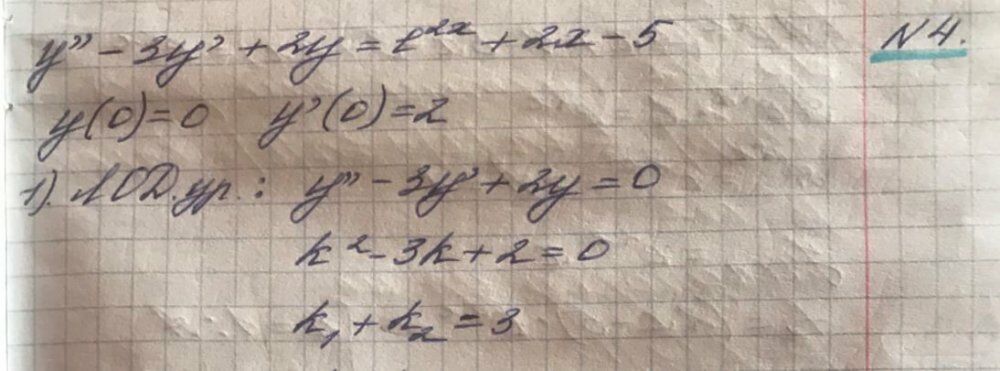 y'' - 3y' + 2y = e^{2x} + 2x - 5 №4.
y(0)=0 y'(0)=2
1). ЛОД.ур.: y'' - 3y' + 2y = 0
k² - 3k + 2 = 0
k₁ + k₂ = 3